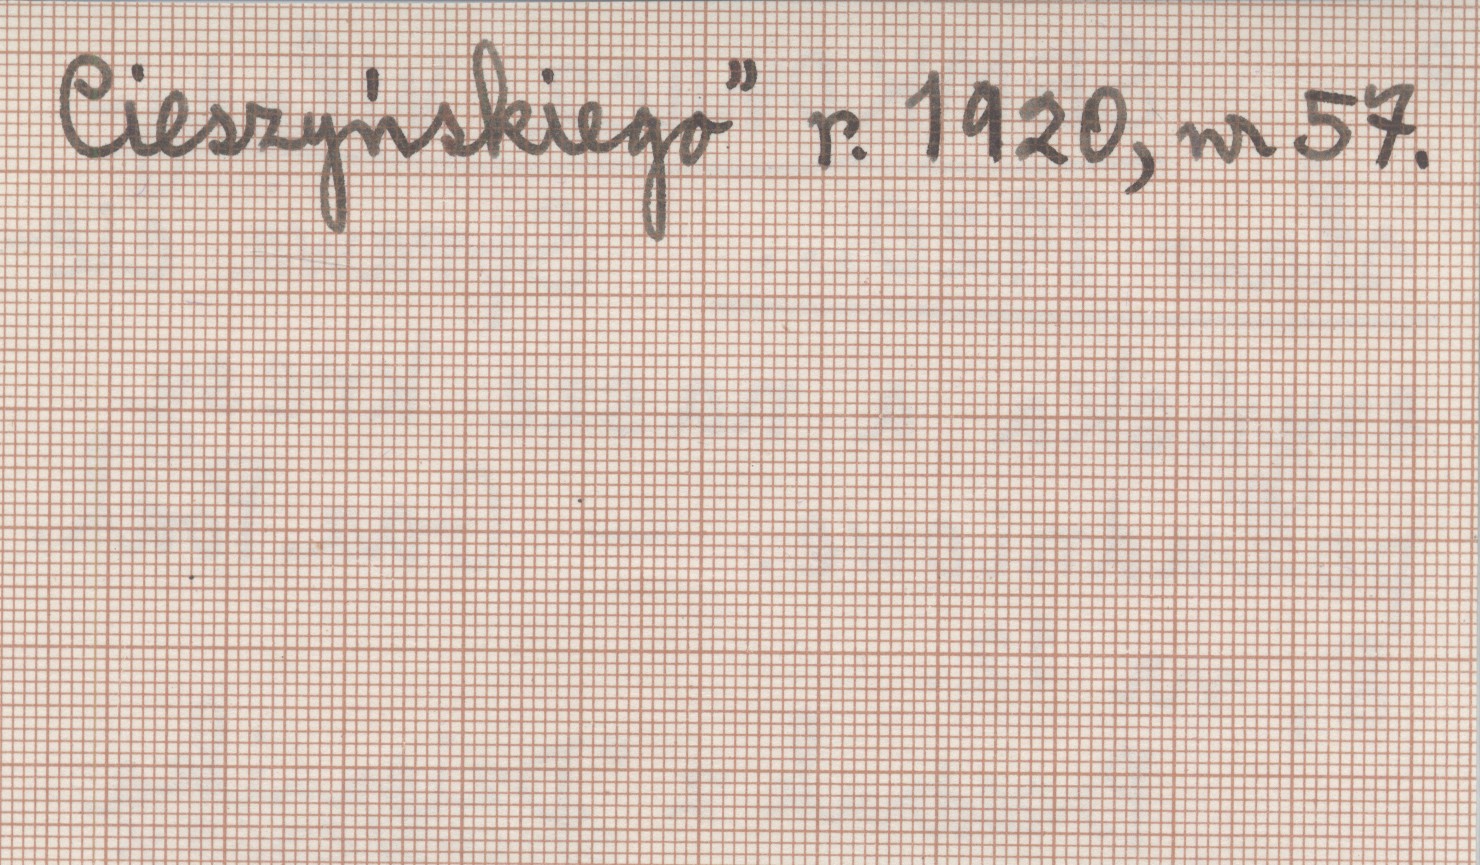 Cieszyńskiego” r. 1920, nr 57.